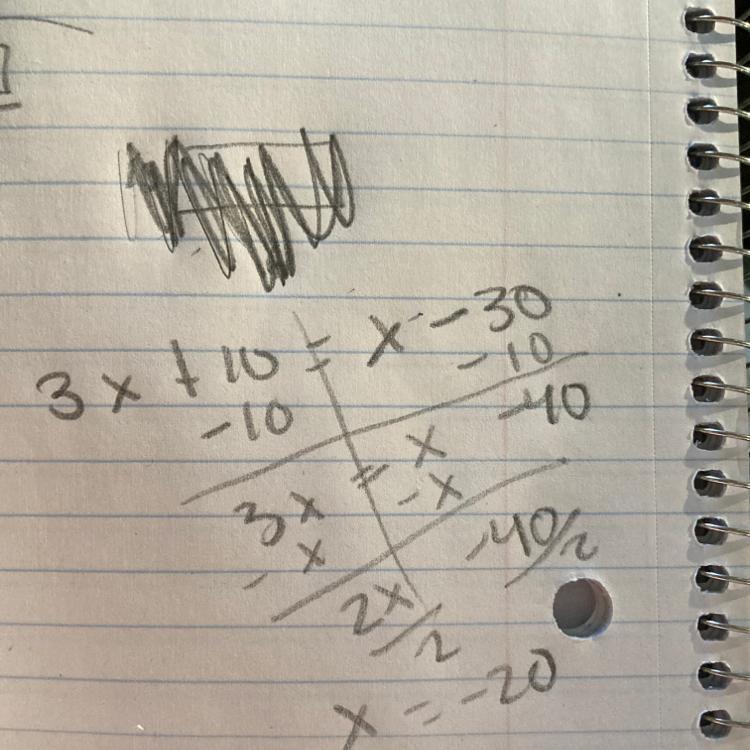 3x + 10 = x - 30
-10 -10
3x = x -40
-x -x
2x/2 -40/2
x = -20